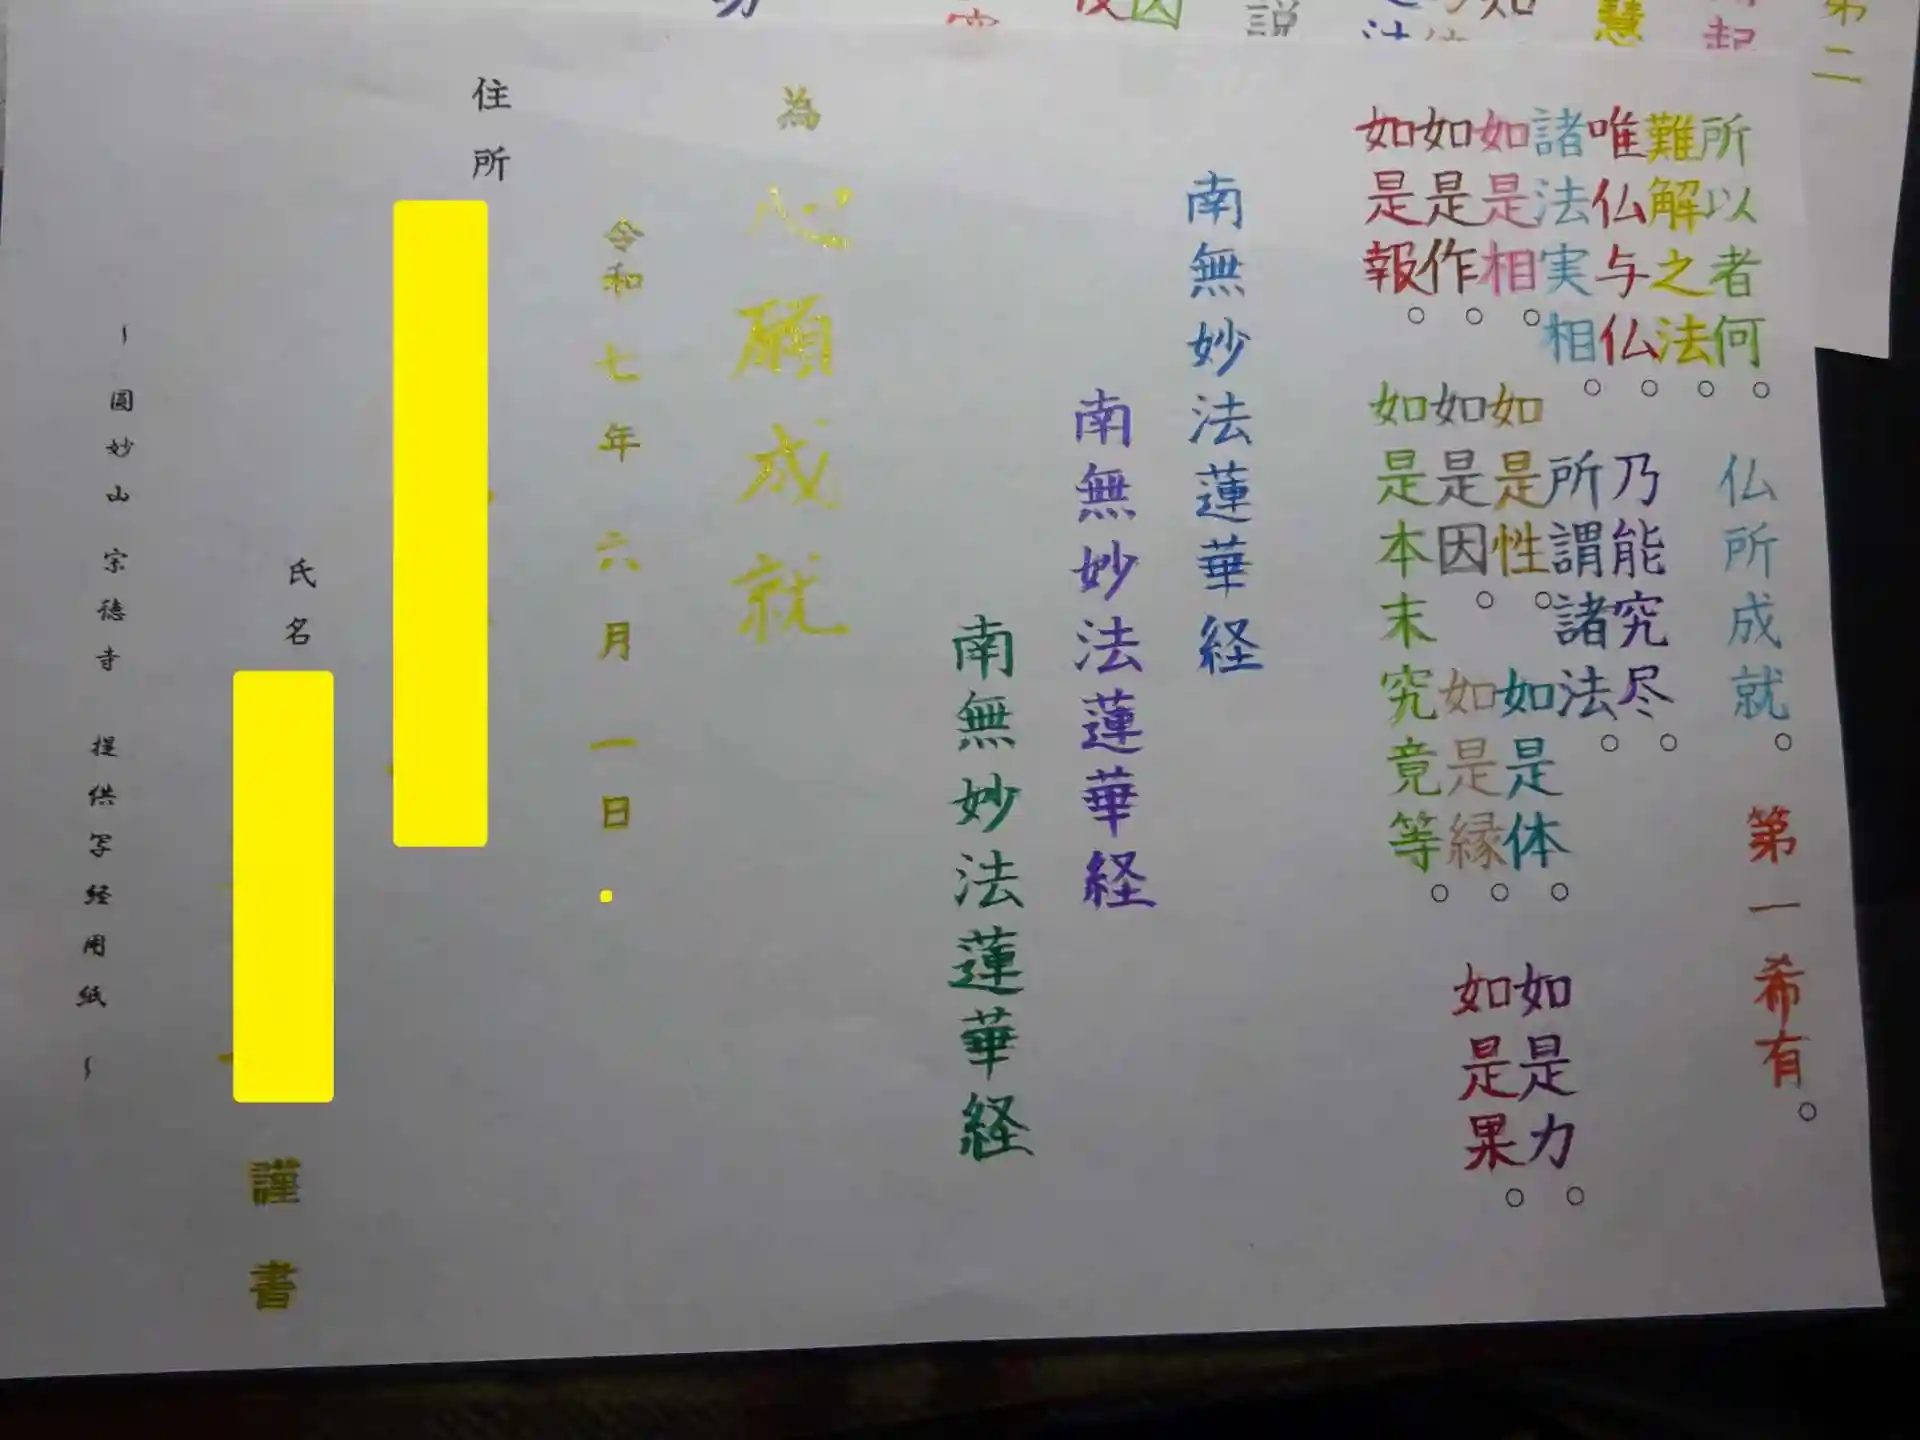 第二
起
慧
説
所以者何。仏所成就。第一希有。
難解之法。
唯仏与仏。乃能究尽。
諸法実相。所謂諸法。
如是相。如是性。如是体。如是力。
如是作。如是因。如是縁。如是果。
如是報。如是本末究竟等。
南無妙法蓮華経
南無妙法蓮華経
南無妙法蓮華経
為 心願成就
令和七年六月一日
住所
氏名 謹書
~圓妙山 宗徳寺 提供写経用紙~